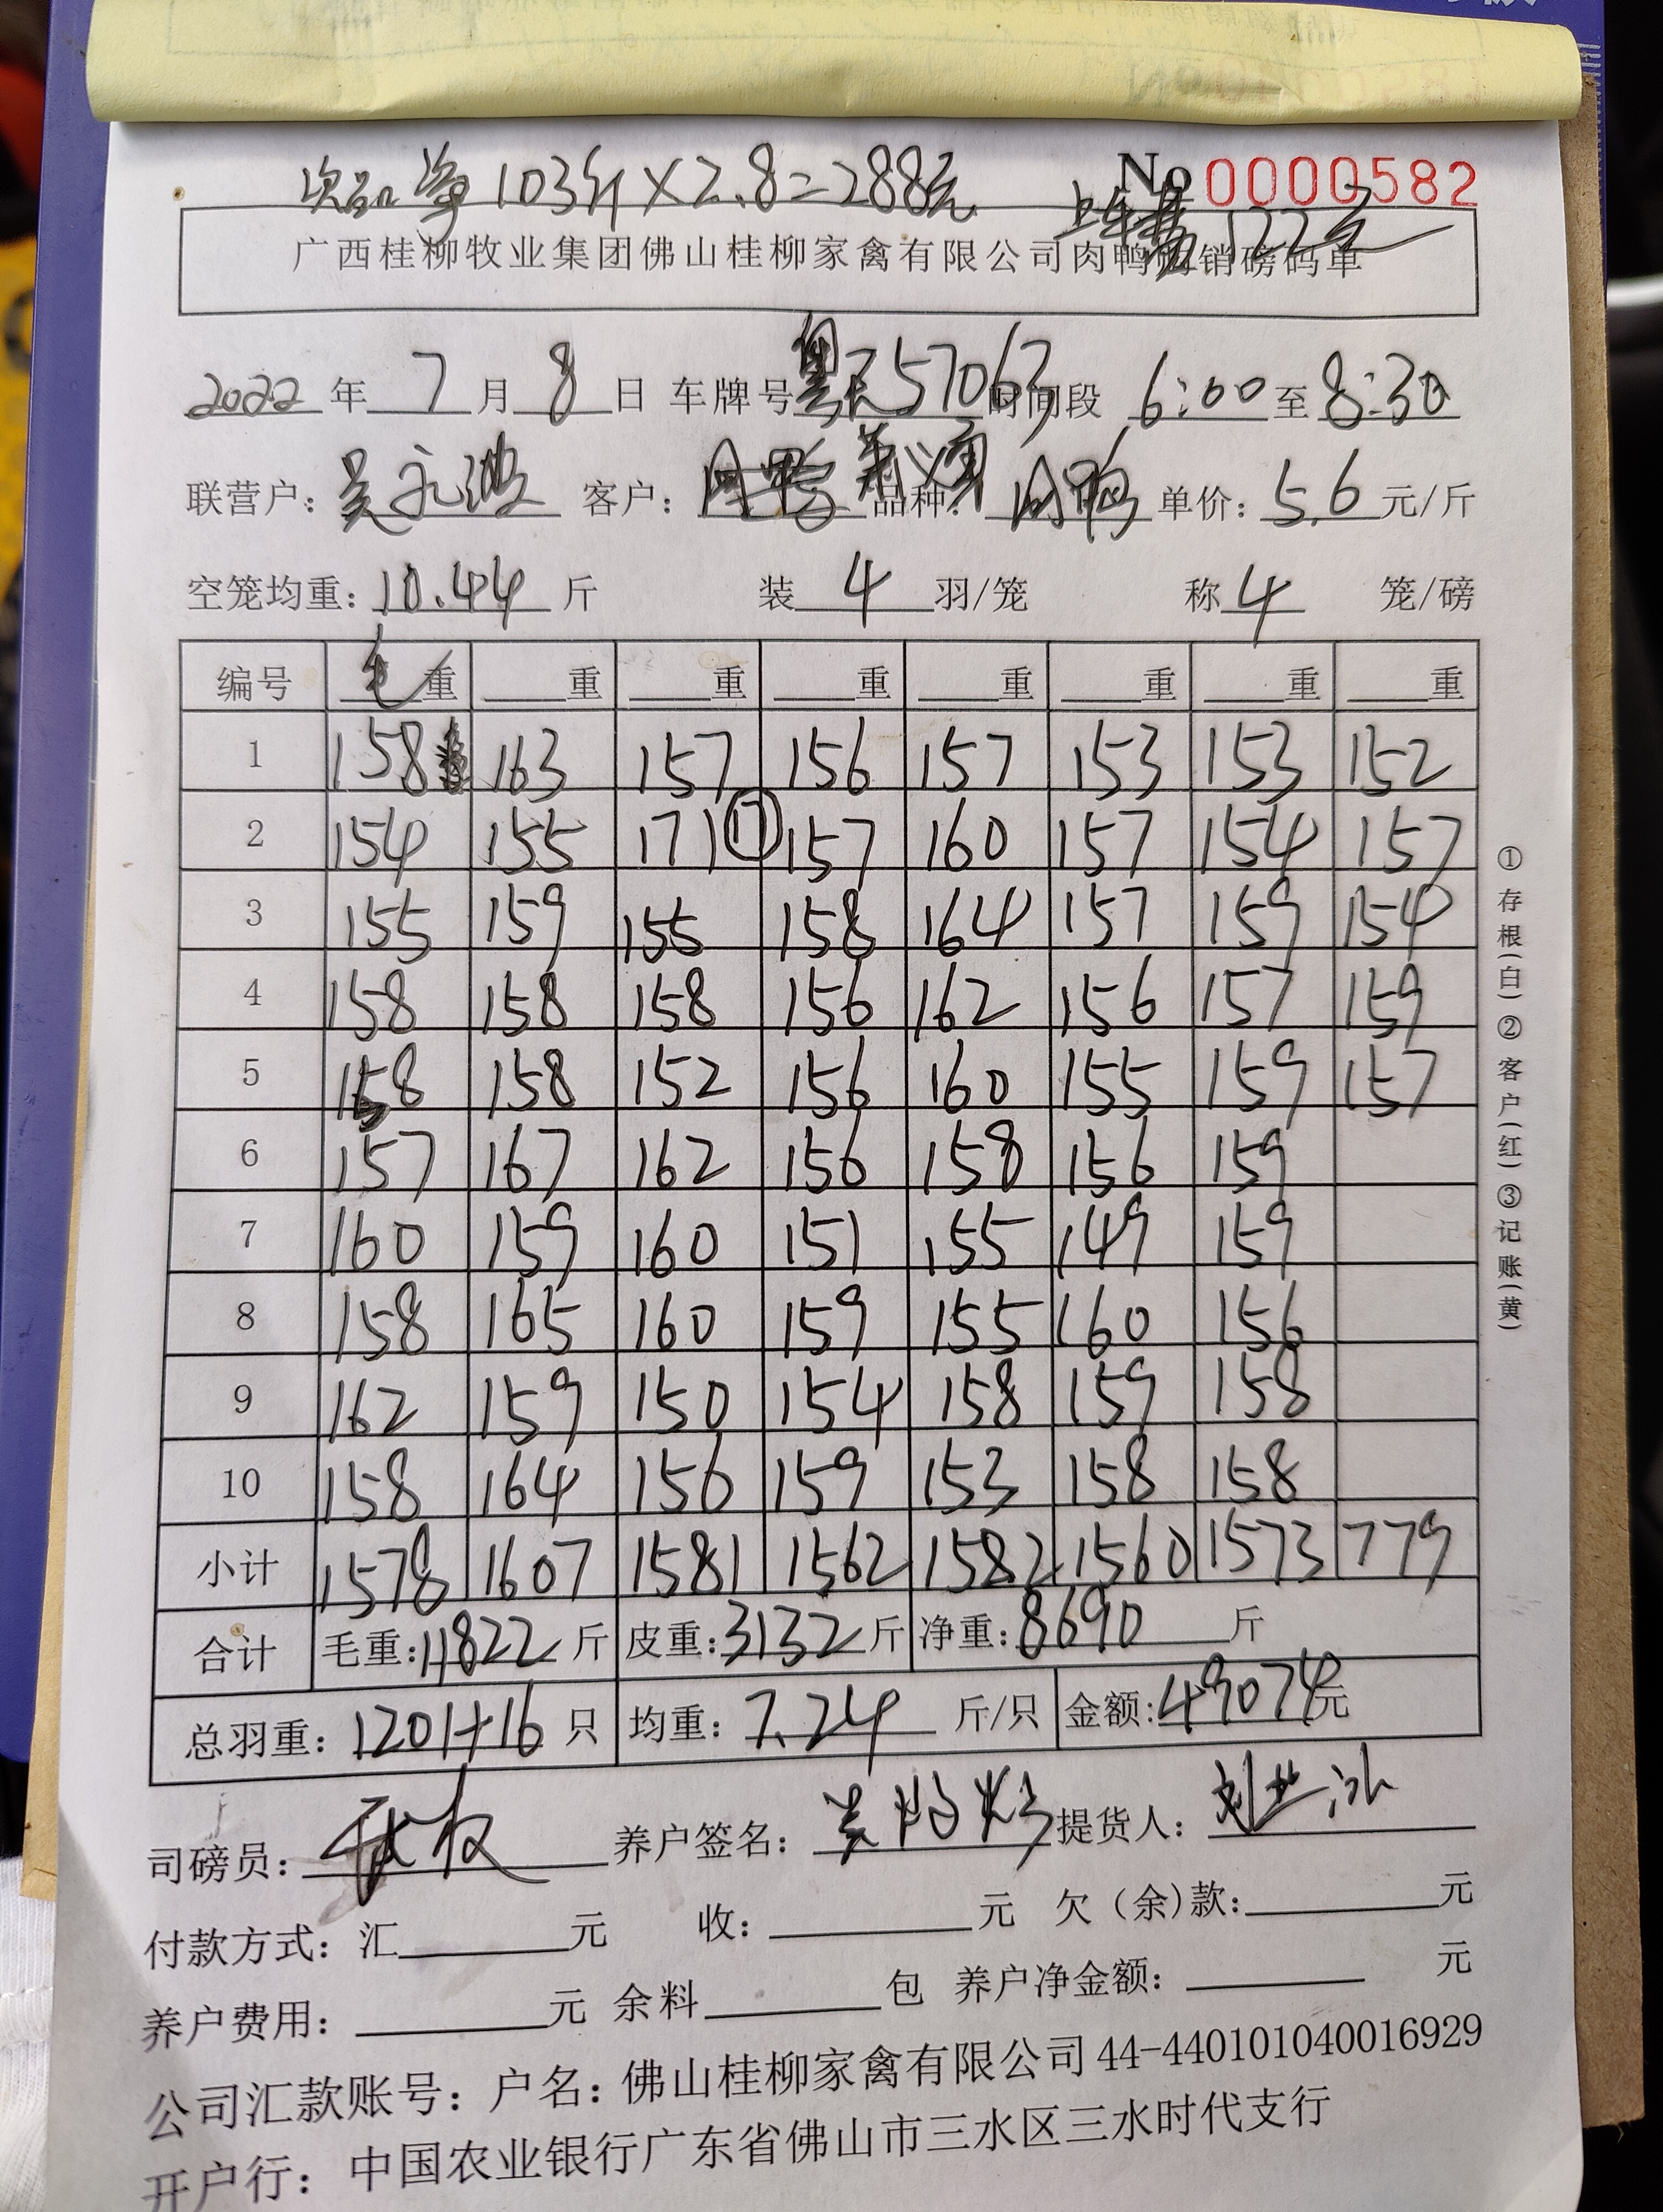 次品净103斤×2.8=288元
No 0000582
上车费122元
广西桂柳牧业集团佛山桂柳家禽有限公司肉鸭购销磅码单
2022年 7月 8日 车牌号 57063 时间段 6:00至8:30
联营户: 吴永波 客户: 品种: 肉鸭 单价: 5.6元/斤
空笼均重: 10.44斤 装 4 羽/笼 称 4 笼/磅
编号 毛重 重 重 重 重 重 重 重
1 158 163 157 156 157 153 153 152
2 154 155 171⑰ 157 160 157 154 157
3 155 159 155 158 164 157 159 154
4 158 158 158 156 162 156 157 159
5 158 158 152 156 160 155 159 157
6 157 167 162 156 158 156 159
7 160 159 160 151 155 149 159
8 158 165 160 159 155 160 156
9 162 159 150 154 158 159 158
10 158 164 156 159 153 158 158
小计 1578 1607 1581 1562 1582 1560 1573 779
合计 毛重:11822斤 皮重:3132斤 净重:8690斤
总羽重: 1201+16只 均重: 7.24斤/只 金额:49074元
司磅员: 养户签名: 提货人:
付款方式: 汇 元 收: 元 欠(余)款: 元
养户费用: 元 余料 包 养户净金额: 元
公司汇款账号: 户名: 佛山桂柳家禽有限公司 44-440101040016929
开户行: 中国农业银行广东省佛山市三水区三水时代支行
①存根(白)②客户(红)③记账(黄)